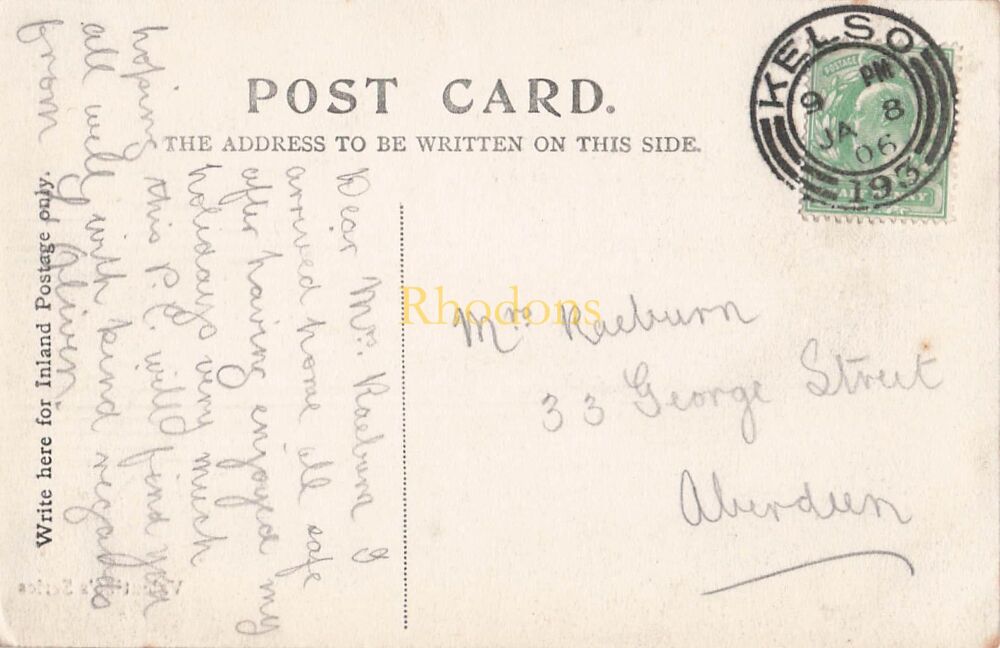 POST CARD.
THE ADDRESS TO BE WRITTEN ON THIS SIDE.
KELSO
PM
9 8
JA 06
195
POSTAGE
Write here for Inland Postage only.
Dear Mrs. Raeburn I
arrived home all safe
after having enjoyed my
holidays very much
hoping this P.C. will find you
all well with kind regards
from
Mrs Raeburn
33 George Street
Aberdeen
Rhodons
Series